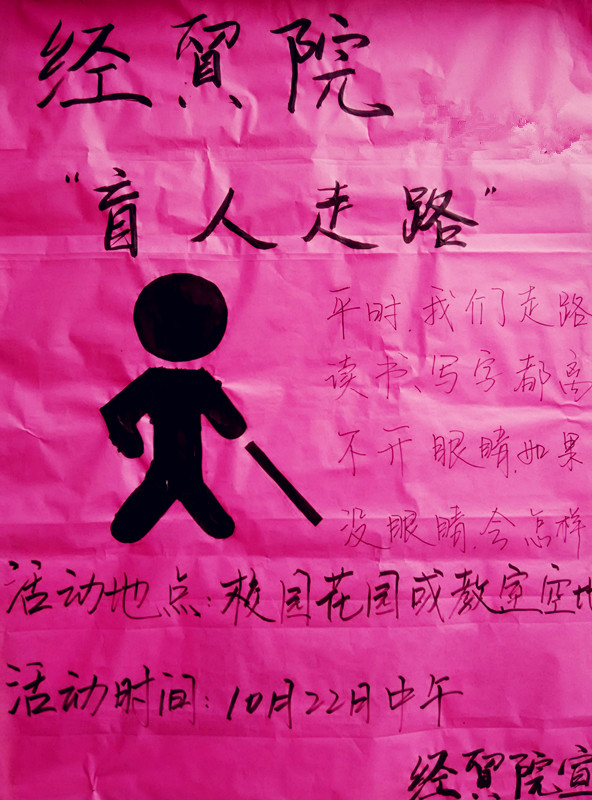 经贸院
"盲人走路"
平时,我们走路
读书、写字都离
不开眼睛,如果
没眼睛,会怎样
活动地点:校园花园或教室空地
活动时间:10月22日中午
经贸院宣